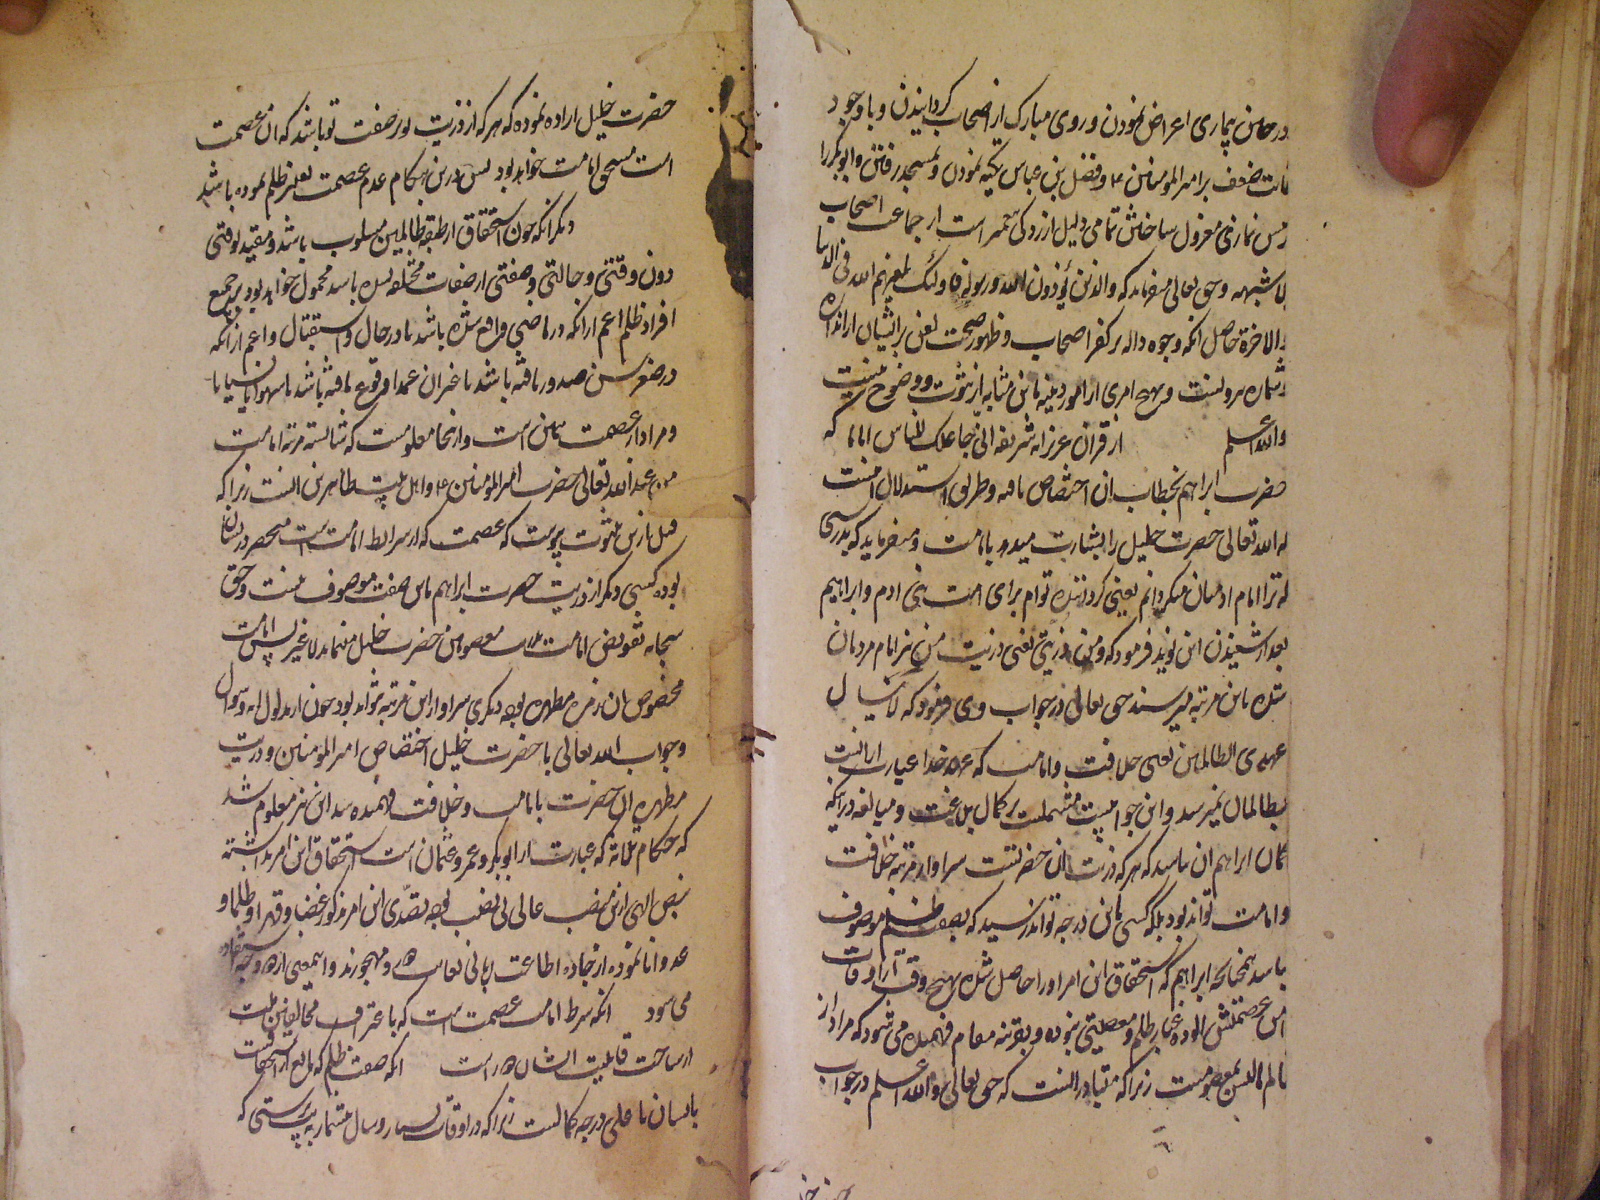 در حین بیماری اعراض نمودن و روی مبارک از اصحاب گردانیدن و با وجود
غایت ضعف بر امیر المومنین ع و فضل بن عباس تکیه نمودن و بمسجد رفتن و ابوبکر را
معزول ساختن تمامی دلیل از است از جماعت اصحاب
بلا شبهه و حق تعالی میفرماید که والذین یوذون الله و رسوله فاولئک لعنهم الله فی الدنیا
والاخرة حاصل انکه وجوه داله بر کفر اصحاب و ظهور صحت لعن بر ایشان از اندازه
شماره بیرونست و هیچ امری از امور دینیه باین مثابه از ثبوت و وضوح نیست
والله اعلم از قران عزیز ایه شریفه انی جاعلک للناس اماما که
حضرت ابراهیم بخطاب ان اختصاص یافته و طریق استدلال انست
که الله تعالی حضرت خلیل را بشارت میدهد بامامت و میفرماید که بدرستی
که ترا امام ادمیان میگردانم یعنی گرداننده توام برای امت بنی ادم و ابراهیم
بعد از شنیدن این نوید فرمود که و من ذریتی یعنی ذریت من نیز امام مردمان
شده باین مرتبه میرسند حق تعالی در جواب وی فرمود که لا ینال
عهدی الظالمین یعنی خلافت و امامت که عهد خدا عبارت ازانست
بظالمان نمیرسد و این جوابیست مشتملست بر کمال بلاغت و مبالغه در اینکه
گمان ابراهیم ان باشد که هر که ذریت ان حضرتست سزاوار مرتبه خلافت
و امامت تواند بود بلکه کسی باین درجه تواند رسید که بصفت ظلم موصوف
باشد همچنانکه ابراهیم که استحقاق این امر او را حاصل شده بهیچ وقت از اوقات
عصمتش الوده غبار ظلم و معصیتی نبوده و بقرینه مقام فهمیده می شود که مراد از
ظالم معصومست زیرا که متبادر انست که حق تعالی والله اعلم در جواب
حضرت خلیل اراده نموده که هر که از ذریت تو بر صفت تو باشد که ان عصمت
است مستحق امامت خواهد بود پس درین هنگام عدم عصمت تعبیر بظلم نموده باشد
دیگر انکه چون استحقاق از طبقه ظالمین مسلوب باشد و مقید بوقتی
دون وقتی و حالتی و صفتی از صفات مختلفه نشده باشد محمول خواهد بود بر جمیع
افراد ظلم اعم ازانکه در ماضی واقع شده باشد یا در حال و استقبال و اعم ازانکه
در صغر سن صدور یافته باشد یا غیر ان عمدا وقوع یافته باشد یا سهوا یا نسیانا
و مراد از عصمت همین است و ازینجا معلومست که شایسته مرتبه امامت
من عند الله تعالی حضرت امیر المومنین ع و اهل بیت طاهرین است زیرا که
قبل ازین بثبوت پیوست که عصمت که از شرایط امامت است منحصر در
بوده کسی دیگر از ذریت حضرت ابراهیم باین صفت موصوف نیست و حق
سبحانه تفویض امامت معصومین حضرت خلیل مینماید لا غیر پس امامت
مخصوص ان زمره مطهره بوده دیگری سزاوار این مرتبه نتواند بود چون از مدلول ایه و سوال
و جواب الله تعالی با حضرت خلیل اختصاص امیر المومنین و ذریت
مطهره ان حضرت بامامت و خلافت فهمیده شد این نیز معلوم شد
که حکام ثلاثه که عبارت از ابوبکر و عمر و عثمان است استحقاق این امر نداشته
بنص الهی ازین منصب عالی بی نصیب بوده تصدی این امر مذکور غصبا و قهرا و ظلما و
عدوانا نموده از جاده اطاعت ربانی و مهجورند و این معنی از دو وجه مستفاد
می شود انکه شرط امامت عصمت است که باعتراف مخالفین
از ساحت قابلیت ایشان دور است انکه صفت ظلم که مانع از استحقاقست
بایشان باعلی درجه کمالست زیرا که در اوقات بسیار و سال بیشمار بت پرستی که